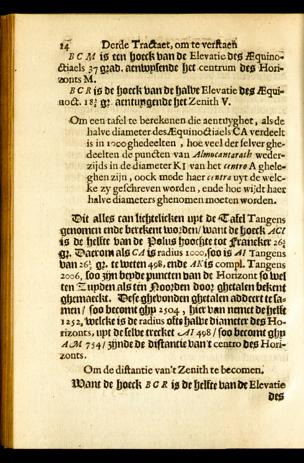 24 Derde Tractaet, om te verstaen
B C M is een hoeck van de Elevatie des Æquino-
ctiaels 37 grad. aenwijsende het centrum des Hori-
zonts M.
B C R is de hoeck van de halve Elevatie des Æqui-
noct. 18½ gr. aentuygende het Zenith V.
Om een tafel te berekenen die aentuyghet, als de
halve diameter des Æquinoctiaels CA verdeelt
is in 1000 ghedeelten, hoe veel der selver ghe-
deelten de puncten van Almucantarath weder-
zijds in de diameter KI van het centro A ghele-
ghen zijn, oock mede haer centra uyt de welc-
ke zy geschreven worden, ende hoe wijdt haer
halve diameters ghenomen moeten worden.
Dit alles can lichtelicken uyt de Tafel Tangens
genomen ende berekent worden/ want de hoeck ACI
is de helfte van de Polus hoochte tot Franeker 26½
gr. Daerom als CA is radius 1000, soo is AI Tangens
van 26½ gr. te weten 498, ende AK is compl. Tangens
2006, soo zijn beyde puncten van de Horizont so wel
ten Zuyden als ten Noorden door ghetalen bekent
ghemaeckt. Dese ghevonden ghetalen addeert te sa-
men/ soo becomt ghy 2504, hier van neemt de helfte
1252, welcke is de radius ofte halve diameter des Ho-
rizonts, uyt de selve trecket AI 498/ soo becomt ghy
AM 754/ zijnde de distantie van't centro des Hori-
zonts.
Om de distantie van't Zenith te becomen.
Want de hoeck B C R is de helfte van de Elevatie
des